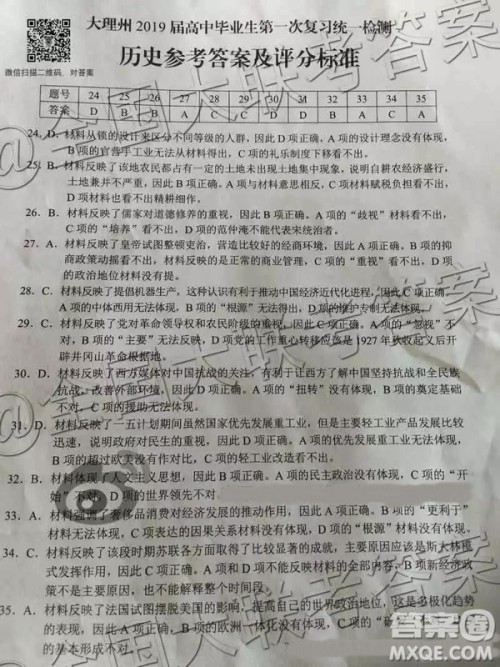 大理州 2019 届高中毕业生第一次复习统一检测
历史参考答案及评分标准
微信扫描二维码，对答案
题号 24 25 26 27 28 29 30 31 32 33 34 35
答案 D B B A C C D D B A C A
24. D。材料从锁的设计来区分不同等级的人群，因此 D 项正确。A 项的设计理念没有体现，
B 项的官营手工业无法从材料得出，C 项的礼乐制度下移看不出。
25. B。材料反映了该地农民都占有一定的土地未出现土地集中现象，说明自耕农经济盛行，
土地兼并不严重，因此 B 项正确。A 项与材料意思相反，C 项材料赋税负担看不出，
D 项材料也看不出精耕细作。
26. B。材料反映了儒家对道德修养的重视，因此 B 项正确。A 项的“歧视”材料看不出，
C 项的“培养”看不出，D 项的范仲淹不能代表宋统治者。
27. A。材料反映了皇帝试图整顿吏治，营造比较好的经商环境，因此 A 项正确。B 项的抑
商政策动摇看不出，材料反映的是正常的商业管理，C 项“重视”看不出，D 项
的政治地位材料没有提。
28. C。材料反映了提倡机器生产，这种认识有利于推动中国经济近代化进程，因此 C 项正确。
A 项的中体西用无法体现，B 项的“根源”无法得出，D 项的维护专制无法体现。
29. C。材料反映了党对革命领导权和农民阶级的重视，因此 C 项正确。A 项的“忽视”不
对，B 项“主力军”无法体现，D 项党的工作重心转移应该是 1927 年秋收起义后开
辟井冈山革命根据地。
30. D。材料反映了西方媒体对中国抗战的关注，有利于让西方了解中国坚持抗战和全民族
抗战，改善外部环境，因此 D 项正确。A 项的“扭转”没有体现，B 项的奠定基础
不对，C 项的援助无法体现。
31. D。材料反映了一五计划期间虽然国家优先发展重工业，但是主要轻工业产品发展比较
迅速，说明对政府对民生的重视，因此 D 项正确。A 项的优先发展重工业无法体现，
B 项的超过无法体现，C 项的有力无法体现，轻工业改造看不出。
32. B。材料体现了人文主义思想，因此 B 项正确。A 项的民主政治没有体现，C 项的“开
始”不对，D 项的世界领先不对。
33. A。材料强调了奢侈品消费对经济发展的推动作用，因此 A 项正确。B 项的“更利于”
材料没有体现，C 项表达的因果关系材料没有体现，D 项的“根源”材料没有得出。
34. C。材料反映了该段时期苏联各方面取得了比较大的成就，主要原因应该是斯大林模
式发挥作用，因此 C 项正确。A 项不能反映材料的全部内容，B 项的新经济政
策不是主要原因，也不能解释整个时间段。
35. A。材料反映了法国试图摆脱美国的影响，提高自己的世界政治地位，这是多极化趋势
的表现，因此 A 项正确。B 项的欧洲一体化没有体现，C 项的
的基本形成不对。
@全国大联考答案